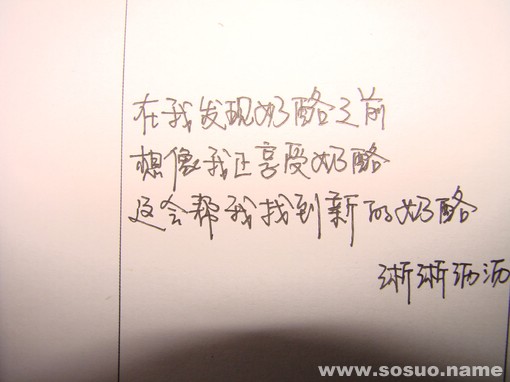 在我发现奶酪之前
想像我正享受奶酪
这会帮我找到新的奶酪
淅淅沥沥
www.sosuo.name